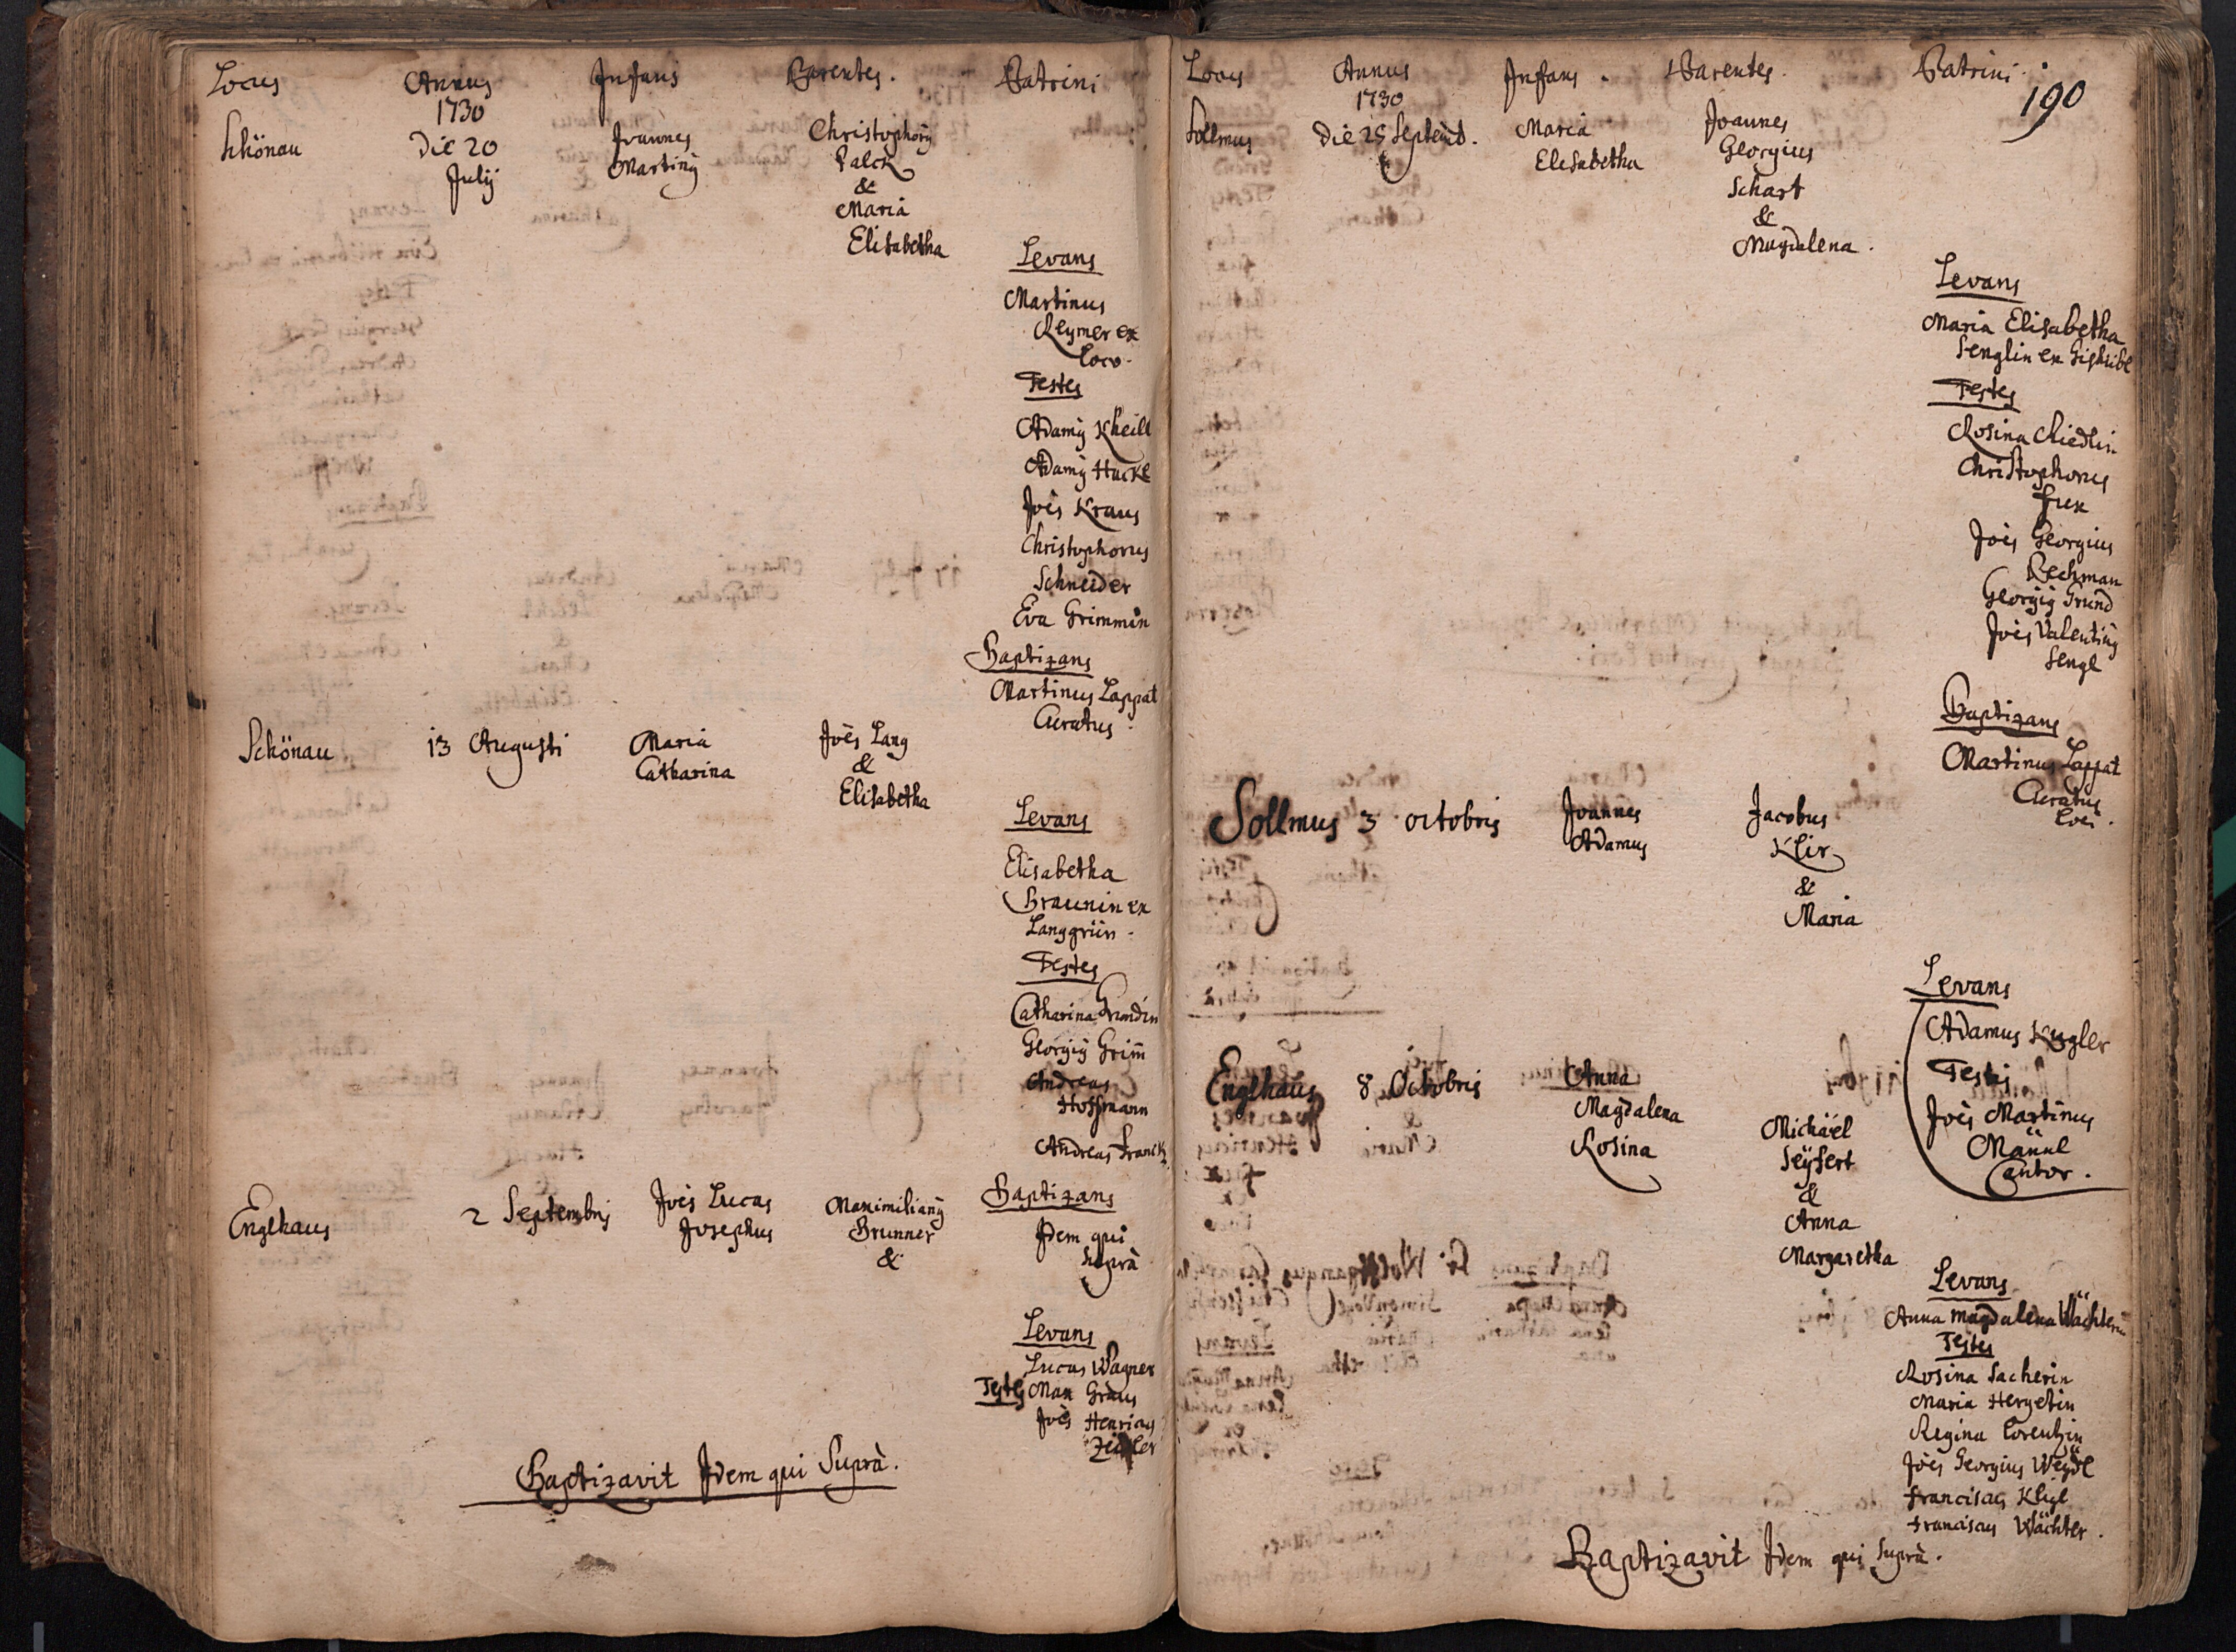 Locus Annus Infans Parentes. Patrini
1730
Schönau Die 20 Joannes Christophorg
July Marting Palck
&
Maria
Elisabetha
Levans
Martinus
Reymer ex
loco.
Testes
Adamg Kheill
Adamg Hackl
Joès Kraus
Christophorus
Schneider
Eva Grimmin
Baptizans
Martinus Lappat
Curatus.
Schönau 13 Augusti Maria Joès Lang
Catharina &
Elisabetha
Levans
Elisabetha
Braunin ex
Langgrün.
Testes
Catharina Grundin
Georgig Grim̄
Andreas
Hoffmann
Andreas Franck
Baptizans
Idem qui
Suprà
Englhaus 2 Septembris Joès Lucas Maximiliang
Josephus Brunner
&
Levans
Lucas Wagner
Testes Max Graus
Joès Henricus
Zeidler
Baptizavit Idem qui Suprà.
Locus Annus Infans. Parentes. Patrini.
190
1730
Sollmus Die 25 Septemb. Maria Joannes
Elisabetha Georgius
Schart
&
Magdalena.
Levans
Maria Elisabetha
Senglin ex
Testes
Rosina Riedlin
Christophorus
Fux
Joès Georgius
Rechman
Georgig Grund
Joès Valenting
Sengl
Baptizans
Martinus Lappat
Curatus
loci.
Sollmus 3 octobris Joannes Jacobus
Adamus Klir
&
Maria
Levans
Adamus Kugler
Testis
Joès Martinus
Männl
Cantor.
Englhaus 8 Octobris Anna Michäel
Magdalena Seÿfert
Rosina &
Anna
Margaretha
Levans
Anna Magdalena Wächterin
Testes
Rosina Sacherin
Maria Hergetin
Regina Lorentzin
Joès Georgius Weÿdl
Franciscus Kligl
Franciscus Wächter.
Baptizavit Idem qui Suprà.